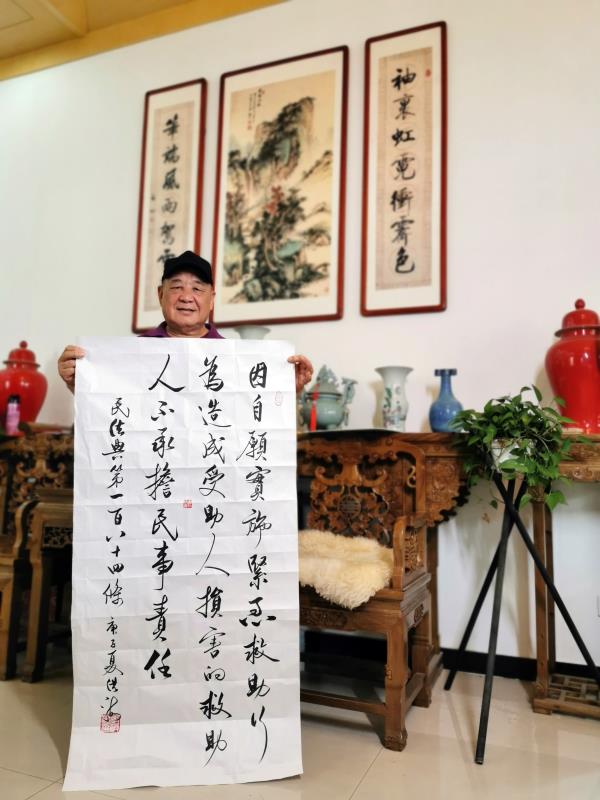 因自願實施緊急救助行
為造成受助人損害的救助
人不承擔民事責任
民法典第一百八十四條 庚子夏洪
袖裏虹霓衝霽色
筆端風雨駕雲